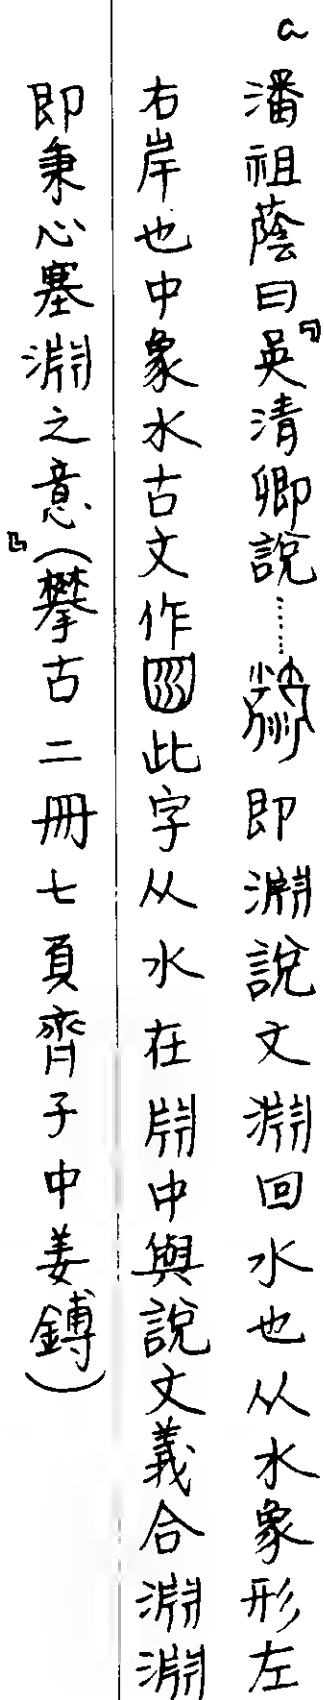 a
潘祖蔭曰『吳清卿說……即淵說文淵回水也从水象形左
右岸也中象水古文作𡇌此字从水在𣶒中與說文義合淵淵
即秉心塞淵之意』(攀古二冊七頁齊子中姜鎛)